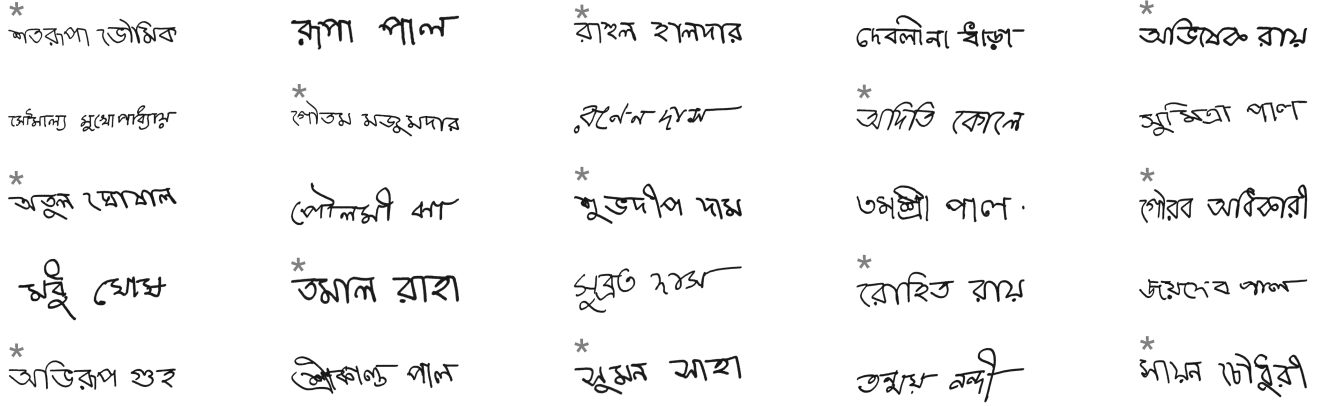 * শতরূপা ভৌমিক রূপা পাল * রাহুল হালদার দেবলীনা ধাড়া * অভিষেক রায়
সৌমাল্য মুখোপাধ্যায় * গৌতম মজুমদার বর্ণেন দাস * অদিতি কোলে সুমিত্রা পাল
* অতুল ঘোষাল পৌলমী * শুভদীপ দাম তমশ্রী পাল * গৌরব অধিকারী
মধু ঘোষ * তমাল রাহা সুব্রত দাস * রোহিত রায় জয়দেব পাল
* অভিরূপ গুহ শ্রীকান্ত পাল * সুমন সাহা তন্ময় নন্দী * সায়ন চৌধুরী